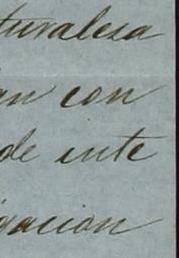 turalesa
an con
de inte
gacion